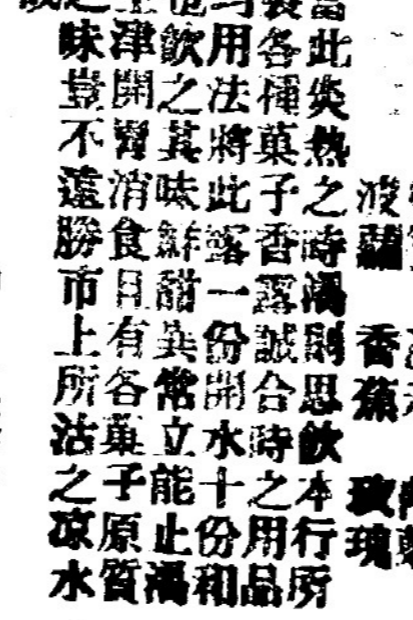 波蘿 香蕉 玫瑰
當此炎熱之時渴則思飲本行所
製各種菓子香露誠合時之用品
用法將此露一份開水十份和
飲之其味鮮甜異常立能止渴
生津開胃消食且有各菓子原質
之味豈不遠勝市上所沽之凉水